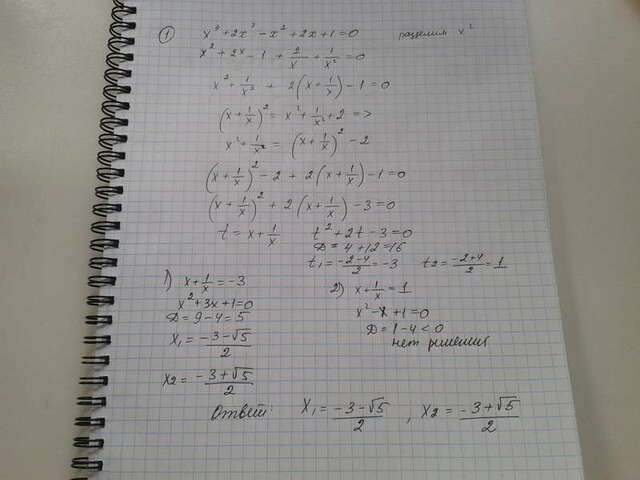 1) x⁴ + 2x³ - x² + 2x + 1 = 0 разделим x²
x² + 2x - 1 + 2/x + 1/x² = 0
x² + 1/x² + 2(x + 1/x) - 1 = 0
(x + 1/x)² = x² + 1/x² + 2 =>
x² + 1/x² = (x + 1/x)² - 2
(x + 1/x)² - 2 + 2(x + 1/x) - 1 = 0
(x + 1/x)² + 2(x + 1/x) - 3 = 0
t = x + 1/x t² + 2t - 3 = 0
D = 4 + 12 = 16
t₁ = (-2-4)/2 = -3 t₂ = (-2+4)/2 = 1
1) x + 1/x = -3
x² + 3x + 1 = 0
D = 9 - 4 = 5
x₁ = (-3-√5)/2
x₂ = (-3+√5)/2
2) x + 1/x = 1
x² - x + 1 = 0
D = 1 - 4 < 0
нет решения
Ответ: x₁ = (-3-√5)/2 , x₂ = (-3+√5)/2